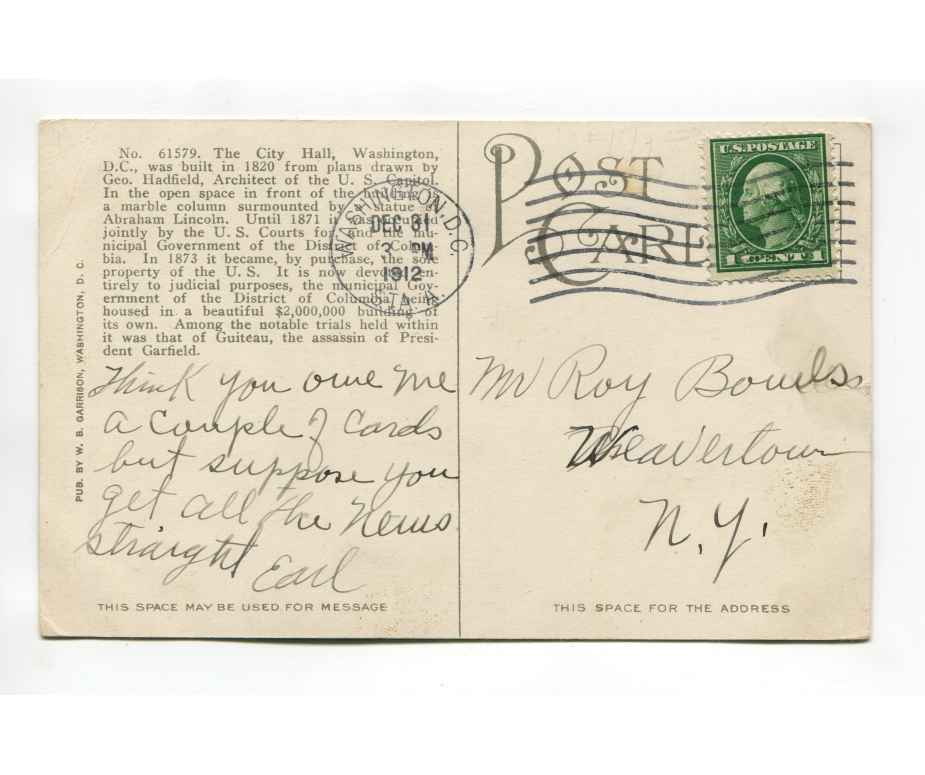 No. 61579. The City Hall, Washington,
D.C., was built in 1820 from plans drawn by
Geo. Hadfield, Architect of the U. S. Capitol.
In the open space in front of the building is
a marble column surmounted by a statue of
Abraham Lincoln. Until 1871 it was occupied
jointly by the U.S. Courts for and the mu-
nicipal Government of the District of Colum-
bia. In 1873 it became, by purchase, the sole
property of the U.S. It is now devoted en-
tirely to judicial purposes, the municipal Gov-
ernment of the District of Columbia being
housed in a beautiful $2,000,000 building of
its own. Among the notable trials held within
it was that of Guiteau, the assassin of Presi-
dent Garfield.
PUB. BY W. B. GARRISON, WASHINGTON, D. C.
Think you owe me
a couple of cards
but suppose you
get all the news
straight
Earl
THIS SPACE MAY BE USED FOR MESSAGE
WASHINGTON, D.C.
DEC 31
3 PM
1912
STA.
POST
CARD
U.S. POSTAGE
1 CENT 1
Mr Roy Bowles
Weavertown
N.Y.
THIS SPACE FOR THE ADDRESS